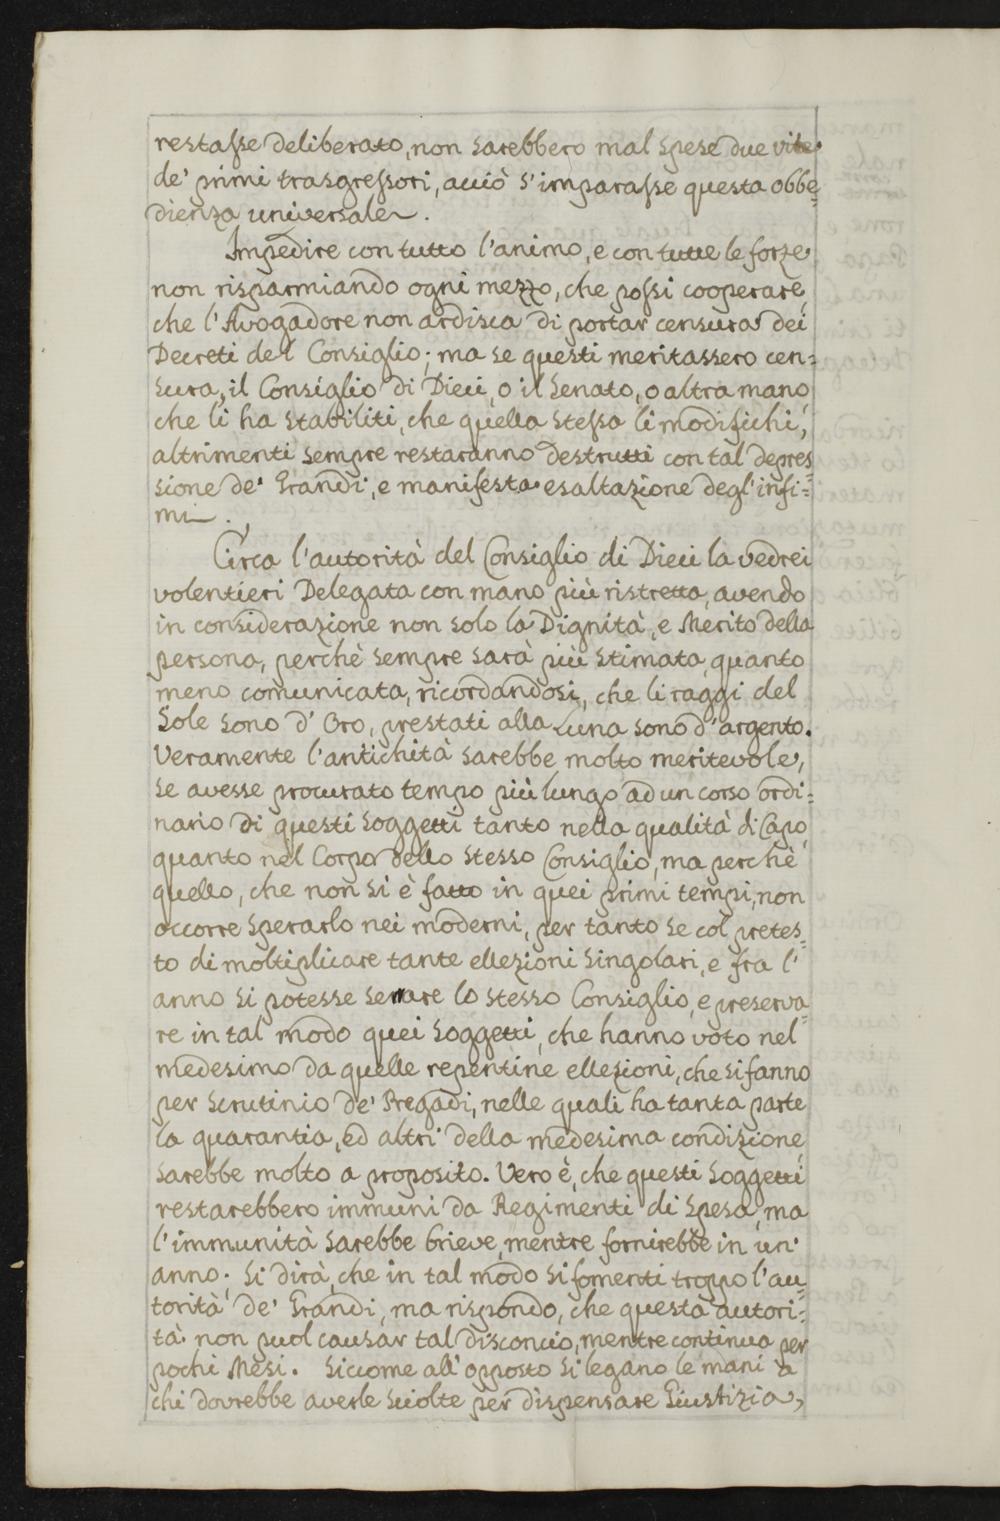 restasse deliberato, non sarebbero mal spese due vite
de' primi trasgressori, acciò s'imparasse questa obbe=
dienza universale.
Impedire con tutto l'animo, e con tutte le forze
non risparmiando ogni mezzo, che possi cooperare,
che l'Avogadore non ardisca di portar censura dei
Decreti del Consiglio; ma se questi meritassero cen=
sura, il Consiglio di Dieci, o il Senato, o altra mano,
che li ha stabiliti, che quella stessa li modifichi,
altrimenti sempre restaranno destrutti con tal depres=
sione de' Grandi, e manifesta esaltazione degl'infi=
mi.
Circa l'autorità del Consiglio di Dieci la vedrei
volentieri Delegata con mano più ristretta, avendo
in considerazione non solo la Dignità, e Merito della
persona, perchè sempre sarà più stimata, quanto
meno comunicata, ricordandosi, che li raggi del
Sole sono d'Oro, prestati alla Luna sono d'argento.
Veramente l'antichità sarebbe molto meritevole,
se avesse procurato tempo più lungo ad un corso ordi=
nario di questi soggetti tanto nella qualità di Capo,
quanto nel Corpo dello stesso Consiglio, ma perchè
quello, che non si è fatto in quei primi tempi, non
occorre sperarlo nei moderni, per tanto se col pretes=
to di moltiplicare tante ellezioni singolari, e fra l'
anno si potesse serrare lo stesso Consiglio, e preserva=
re in tal modo quei soggetti, che hanno voto nel
medesimo da quelle repentine ellezioni, che si fanno
per scrutinio de' Pregadi, nelle quali ha tanta parte
la quarantia, ed altri della medesima condizione,
sarebbe molto a proposito. Vero è, che questi soggetti
restarebbero immuni da Regimenti di spesa, ma
l'immunità sarebbe brieve, mentre fornirebbe in un'
anno. Si dirà, che in tal modo si fomenti troppo l'au=
torità de' Grandi, ma rispondo, che questa autori=
tà non puol causar tal disconcio, mentre continua per
pochi Mesi. Siccome all'opposto si legano le mani a
chi dovrebbe averle sciolte per dispensare Giustizia,